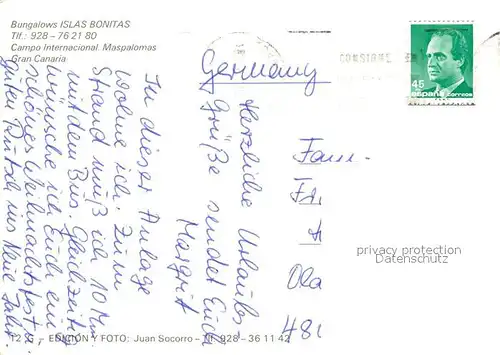 Bungalows ISLAS BONITAS
Tlf.: 928 - 76 21 80
Campo Internacional. Maspalomas
Gran Canaria
CONSIGNE
45
españa
correos
Germany
In dieser Anlage
wohne ich. Zum
Strand muß ich 10 Min.
mit dem Bus. Gleichzeitig
wünsche ich Euch ein
schönes Weihnachtsfest u.
guten Rutsch ins Neue Jahr.
Herzliche Urlaubs-
grüße sendet Euch
Margrit
Fam.
Ola
481
privacy protection
Datenschutz
EDICIÓN Y FOTO: Juan Socorro - Tf. 928 - 36 11 42